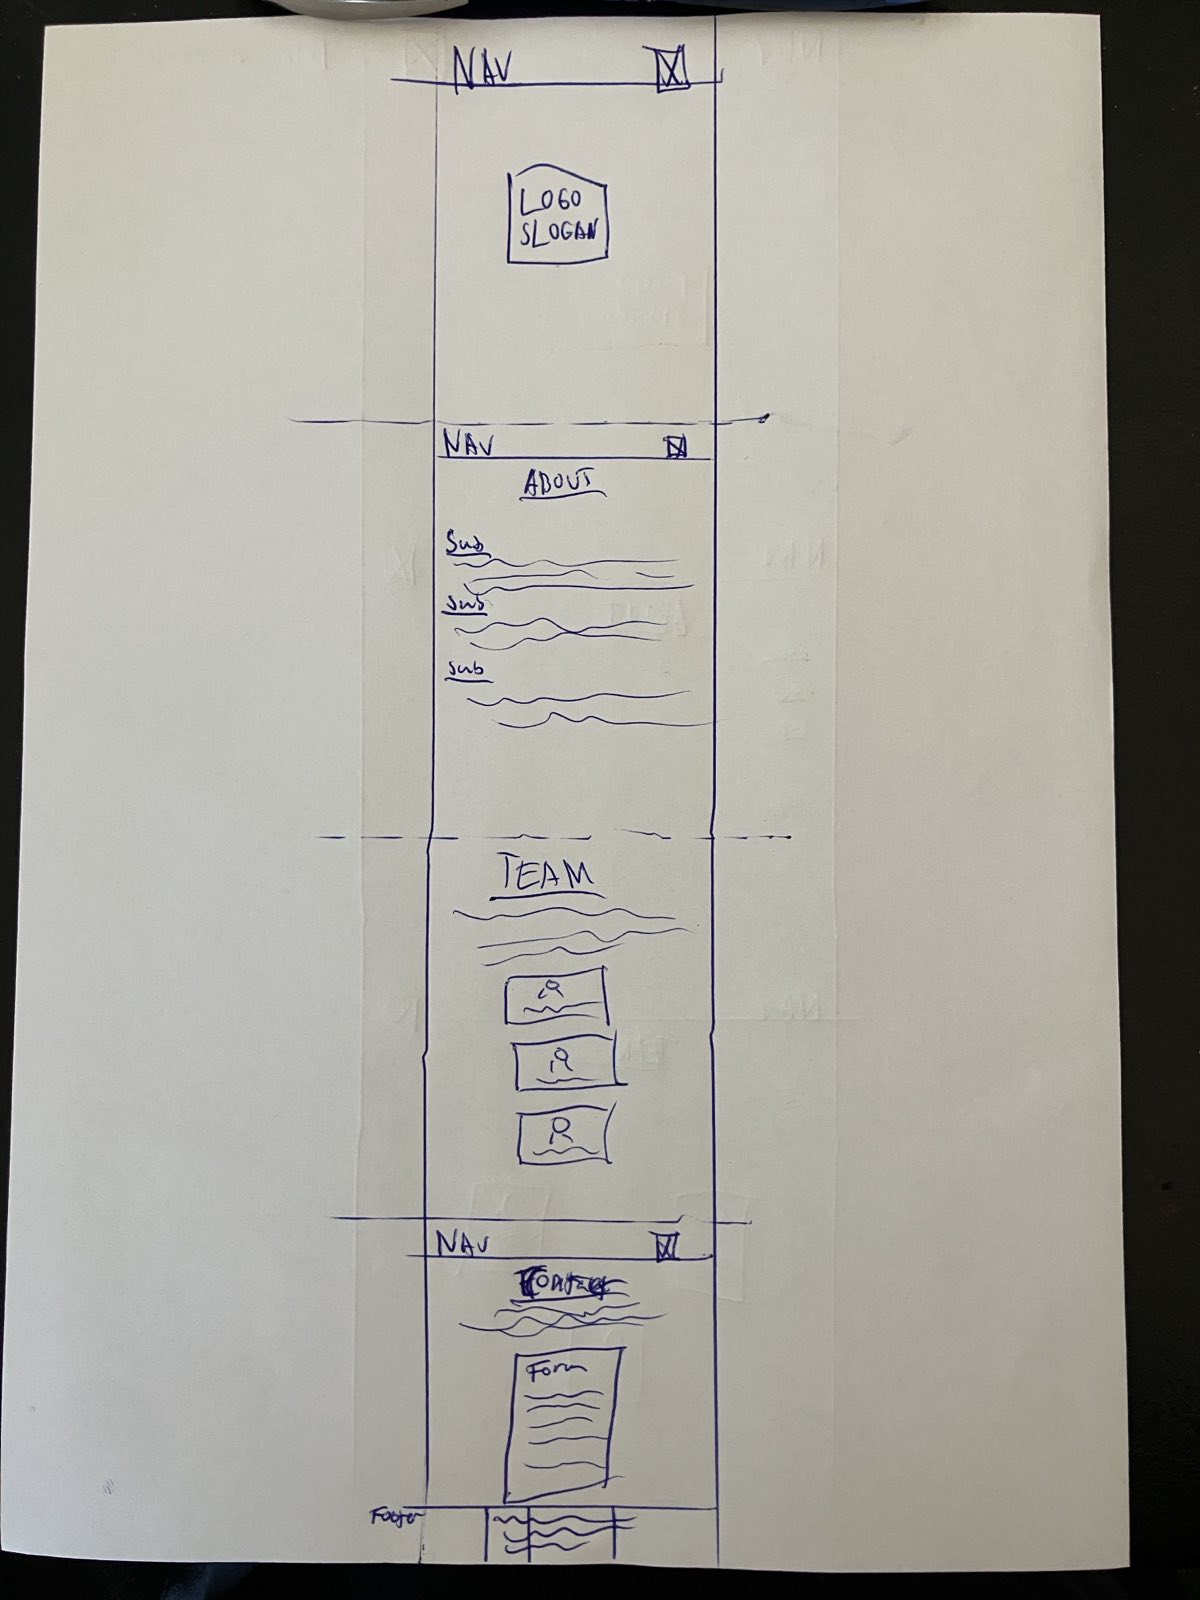 NAV
LOGO
SLOGAN
NAV
ABOUT
Sub
Sub
Sub
TEAM
NAV
Contact
Form
Footer